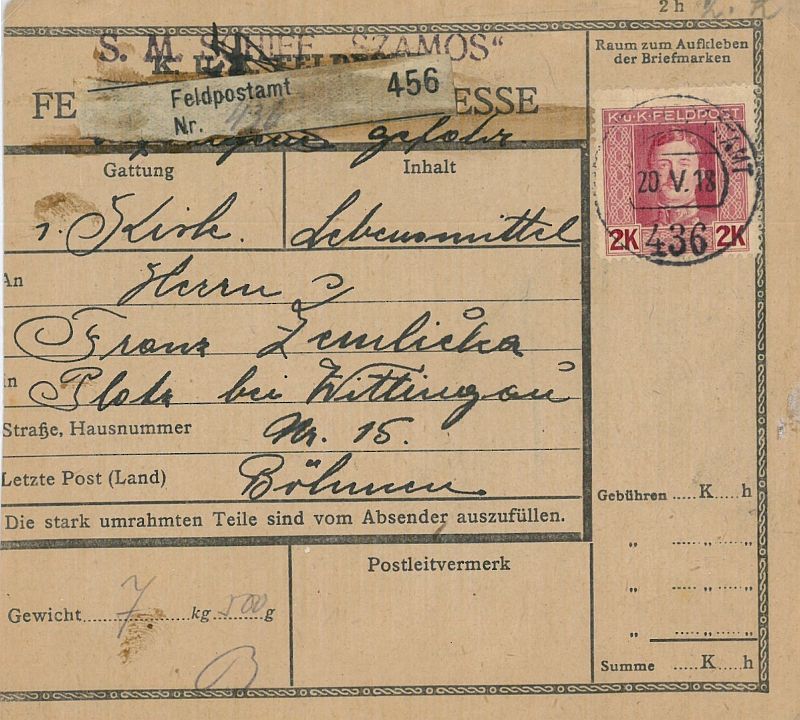 2 h
S. M. SCHIFF „SZAMOS“
Feldpostamt 456
Nr. 436
FE ESSE
gefahr.
Gattung
Inhalt
1. Kiste.
Lebensmittel
An
Herrn
Franz Zemlička
in
Platz bei Wittingau
Straße, Hausnummer
Nr. 15.
Letzte Post (Land)
Böhmen
Die stark umrahmten Teile sind vom Absender auszufüllen.
Gewicht 7 kg 500 g
Postleitvermerk
Raum zum Aufkleben
der Briefmarken
K.u.K. FELDPOST
20 V. 18
436
2K 2K
Gebühren ..... K ... h
„ ..... „ ..... „
„ ..... „ ..... „
„ ..... „ ..... „
Summe ..... K ... h